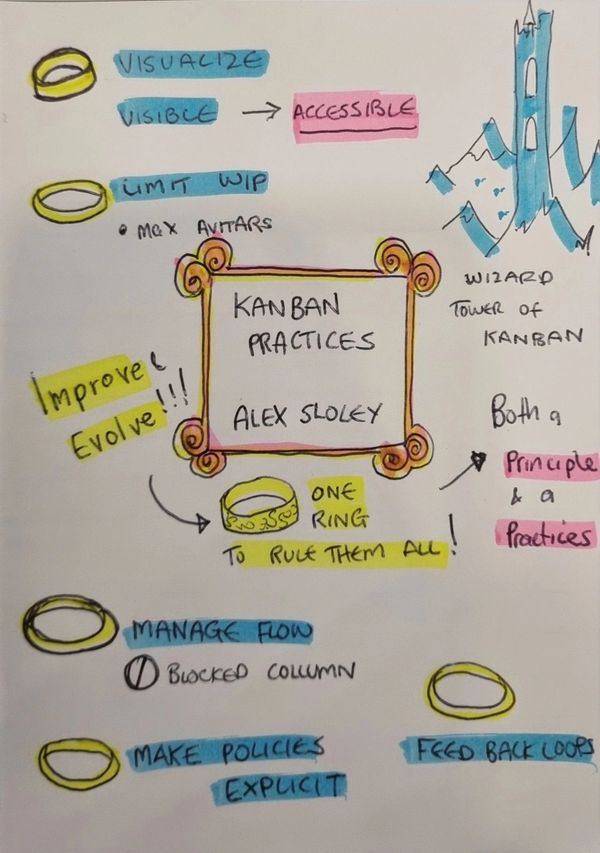 VISUALIZE
VISIBLE → ACCESSIBLE
LIMIT WIP
• MAX AVITARS
WIZARD
TOWER OF
KANBAN
KANBAN
PRACTICES
ALEX SLOLEY
Improve &
Evolve!!!
ONE
RING
TO RULE THEM ALL!
Both a
Principle
& a
Practices
MANAGE FLOW
BLOCKED COLLUMN
MAKE POLICIES
EXPLICIT
FEED BACK LOOPS